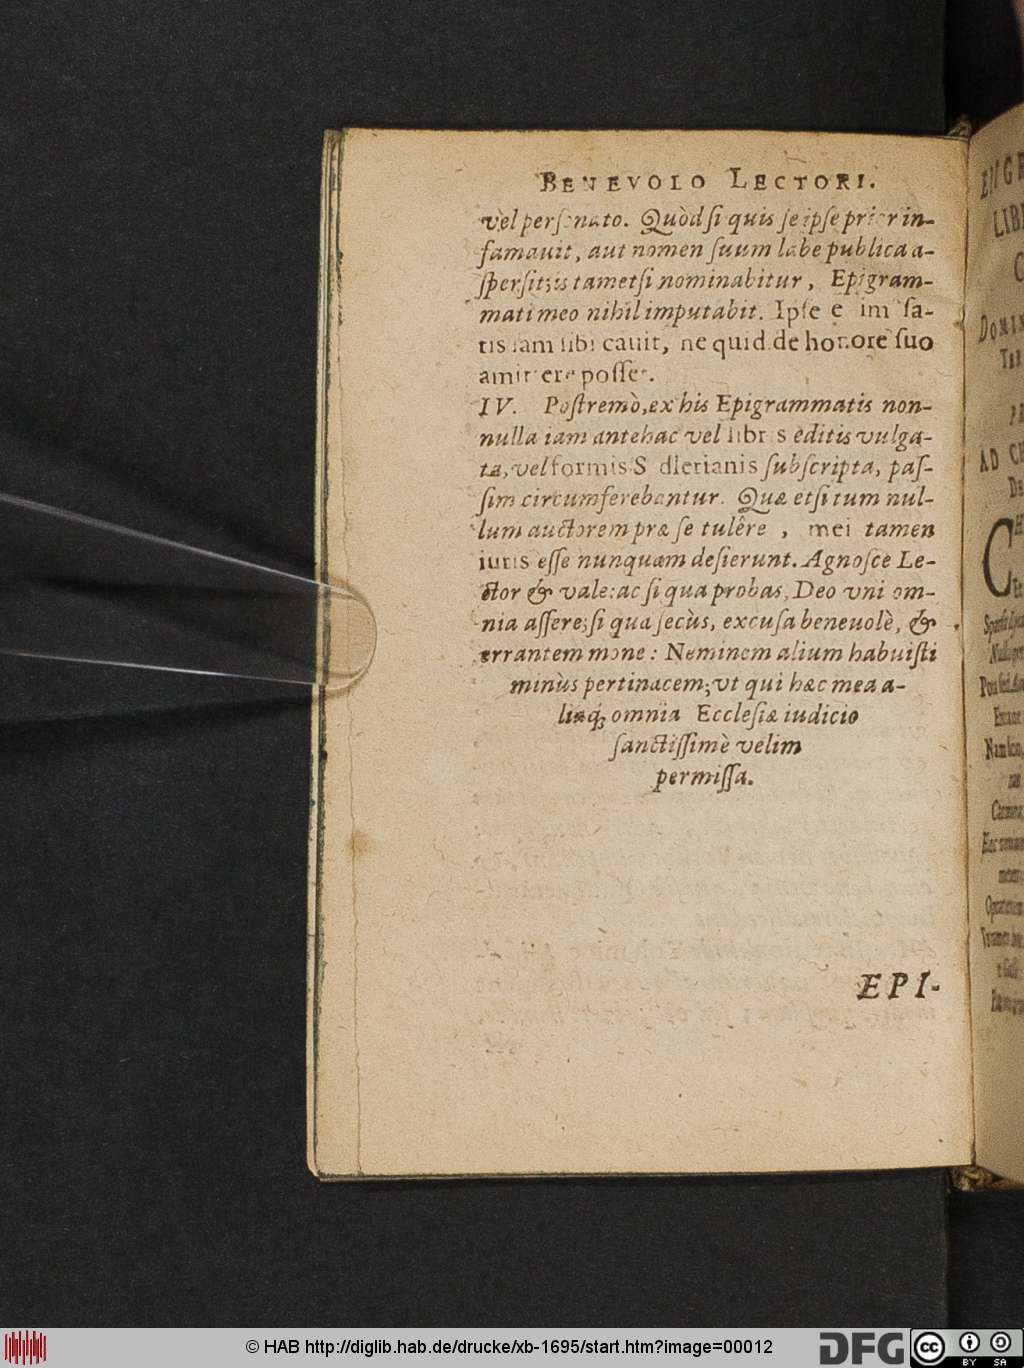 BENEVOLO LECTORI.
vel personato. Quòd si quis se ipse prior in-
famauit, aut nomen suum labe publica a-
spersit; is tametsi nominabitur, Epigram-
mati meo nihil imputabit. Ipse enim sa-
tis iam sibi cauit, ne quid de honore suo
amittere posset.
IV. Postremò, ex his Epigrammatis non-
nulla iam antehac vel libris editis vulga-
ta, vel formis Sadlerianis subscripta, pas-
sim circumferebantur. Quæ etsi tum nul-
lum auctorem præ se tulêre, mei tamen
iuris esse nunquam desierunt. Agnosce Le-
ctor & vale: ac si qua probas, Deo vni om-
nia assere; si qua secùs, excusa beneuolè, &
errantem mone: Neminem alium habuisti
minùs pertinacem; vt qui hæc mea a-
liaq; omnia Ecclesiæ iudicio
sanctissimè velim
permissa.
EPI-
© HAB http://diglib.hab.de/drucke/xb-1695/start.htm?image=00012
DFG
cc
BY SA